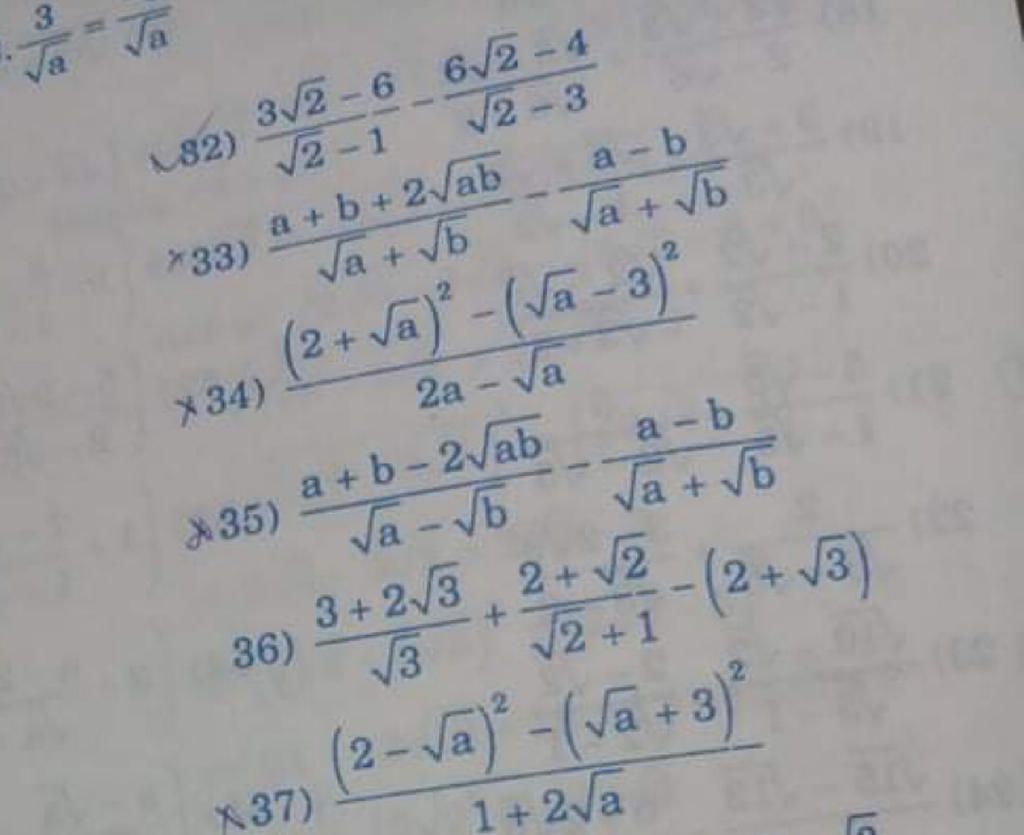 3/√a = /√a
32) (3√2 - 6)/(√2 - 1) - (6√2 - 4)/(√2 - 3)
33) (a + b + 2√ab)/(√a + √b) - (a - b)/(√a + √b)
34) ((2 + √a)² - (√a - 3)²)/(2a - √a)
35) (a + b - 2√ab)/(√a - √b) - (a - b)/(√a + √b)
36) (3 + 2√3)/√3 + (2 + √2)/(√2 + 1) - (2 + √3)
37) ((2 - √a)² - (√a + 3)²)/(1 + 2√a)